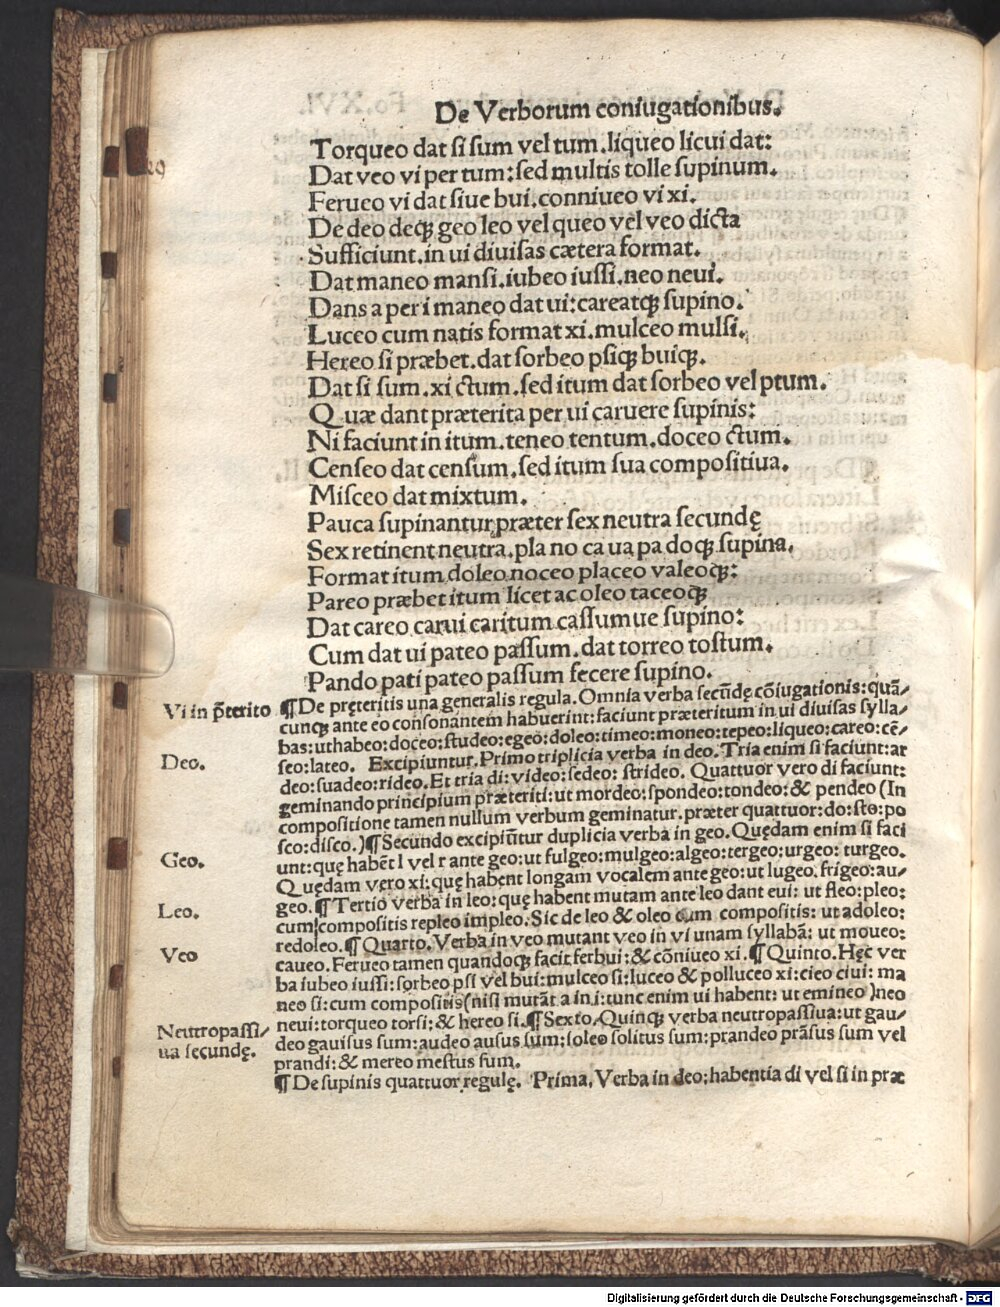 De Verborum coniugationibus.
Torqueo dat si sum vel tum.liqueo licui dat:
Dat veo vi per tum:sed multis tolle supinum.
Ferueo vi dat siue bui.conniueo vi xi.
De deo deqꝫ geo leo vel queo vel veo dicta
Sufficiunt.in ui diuisas cætera format.
Dat maneo mansi.iubeo iussi.neo neui.
Dans a per i maneo dat ui:careatqꝫ supino.
Luceo cum natis format xi.mulceo mulsi.
Hereo si præbet.dat sorbeo psiqꝫ buiqꝫ.
Dat si sum.xi ctum.sed itum dat sorbeo vel ptum.
Quæ dant præterita per ui caruere supinis:
Ni faciunt in itum.teneo tentum.doceo ctum.
Censeo dat censum.sed itum sua compositiua.
Misceo dat mixtum.
Pauca supinantur præter sex neutra secundę
Sex retinent neutra.pla no ca ua pa doqꝫ supina.
Format itum doleo noceo placeo valeoqꝫ:
Pareo præbet itum licet ac oleo taceoqꝫ
Dat careo carui caritum cassumue supino:
Cum dat ui pateo passum.dat torreo tostum.
Pando pati pateo passum fecere supino.
Vi in p̃terito ¶De pręteritis una generalis regula.Omnia verba secũdę cõiugationis:quã/
cunqꝫ ante eo consonantem habuerint:faciunt præteritum in ui diuisas sylla/
bas:ut habeo:doceo:studeo:egeo:doleo:timeo:moneo:tepeo:liqueo:careo:cē/
Deo. seo:lateo. Excipiuntur.Primo triplicia verba in deo.Tria enim si faciunt:ar
deo:suadeo:rideo.Et tria di:video:sedeo: strideo. Quattuor vero di faciunt:
geminando principium præteriti:ut mordeo:spondeo:tondeo:& pendeo (In
compositione tamen nullum verbum geminatur.præter quattuor:do:sto:po
sco:disco.)¶Secundo excipiũtur duplicia verba in geo.Quędam enim si faci
Geo. unt:quę habēt l vel r ante geo:ut fulgeo:mulgeo:algeo:tergeo:urgeo: turgeo.
Quędam vero xi:quę habent longam vocalem ante geo:ut lugeo.frigeo:au/
Leo. geo.¶Tertio verba in leo:quę habent mutam ante leo dant eui: ut fleo:pleo:
cum compositis repleo impleo.Sic de leo & oleo cum compositis: ut adoleo:
redoleo.¶Quarto.Verba in veo mutant veo in vi unam syllabã: ut moueo:
Veo caueo.Ferueo tamen quandoqꝫ facit ferbui:& cõniueo xi.¶Quinto.Hęc ver
ba iubeo iussi:sorbeo psi vel bui:mulceo si:luceo & polluceo xi:cieo ciui: ma
neo si:cum compositis(nisi mutãt a in i:tunc enim ui habent: ut emineo )neo
neui:torqueo torsi:& hereo si.¶Sexto.Quinqꝫ verba neutropassiua:ut gau/
Neutropassi/ deo gauisus sum:audeo ausus sum:soleo solitus sum:prandeo prãsus sum vel
ua secundę. prandi:& mereo mestus sum.
¶De supinis quattuor regulę. Prima.Verba in deo:habentia di vel si in præ
Digitalisierung gefördert durch die Deutsche Forschungsgemeinschaft - DFG